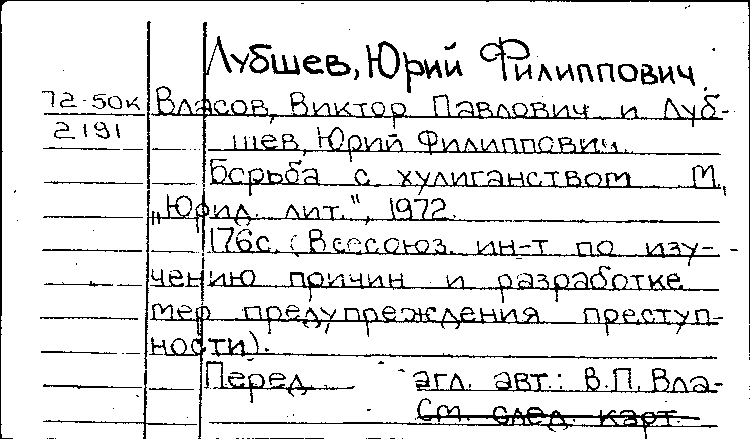 Лубшев, Юрий Филиппович.
72-50к Власов, Виктор Павлович и Луб-
2191 шев, Юрий Филиппович.
Борьба с хулиганством М.,
„Юрид. лит.", 1972.
176с. (Всесоюз. ин-т по изу-
чению причин и разработке
мер предупреждения преступ-
ности).
Перед загл. авт.: В.П. Вла-
См. след. карт.